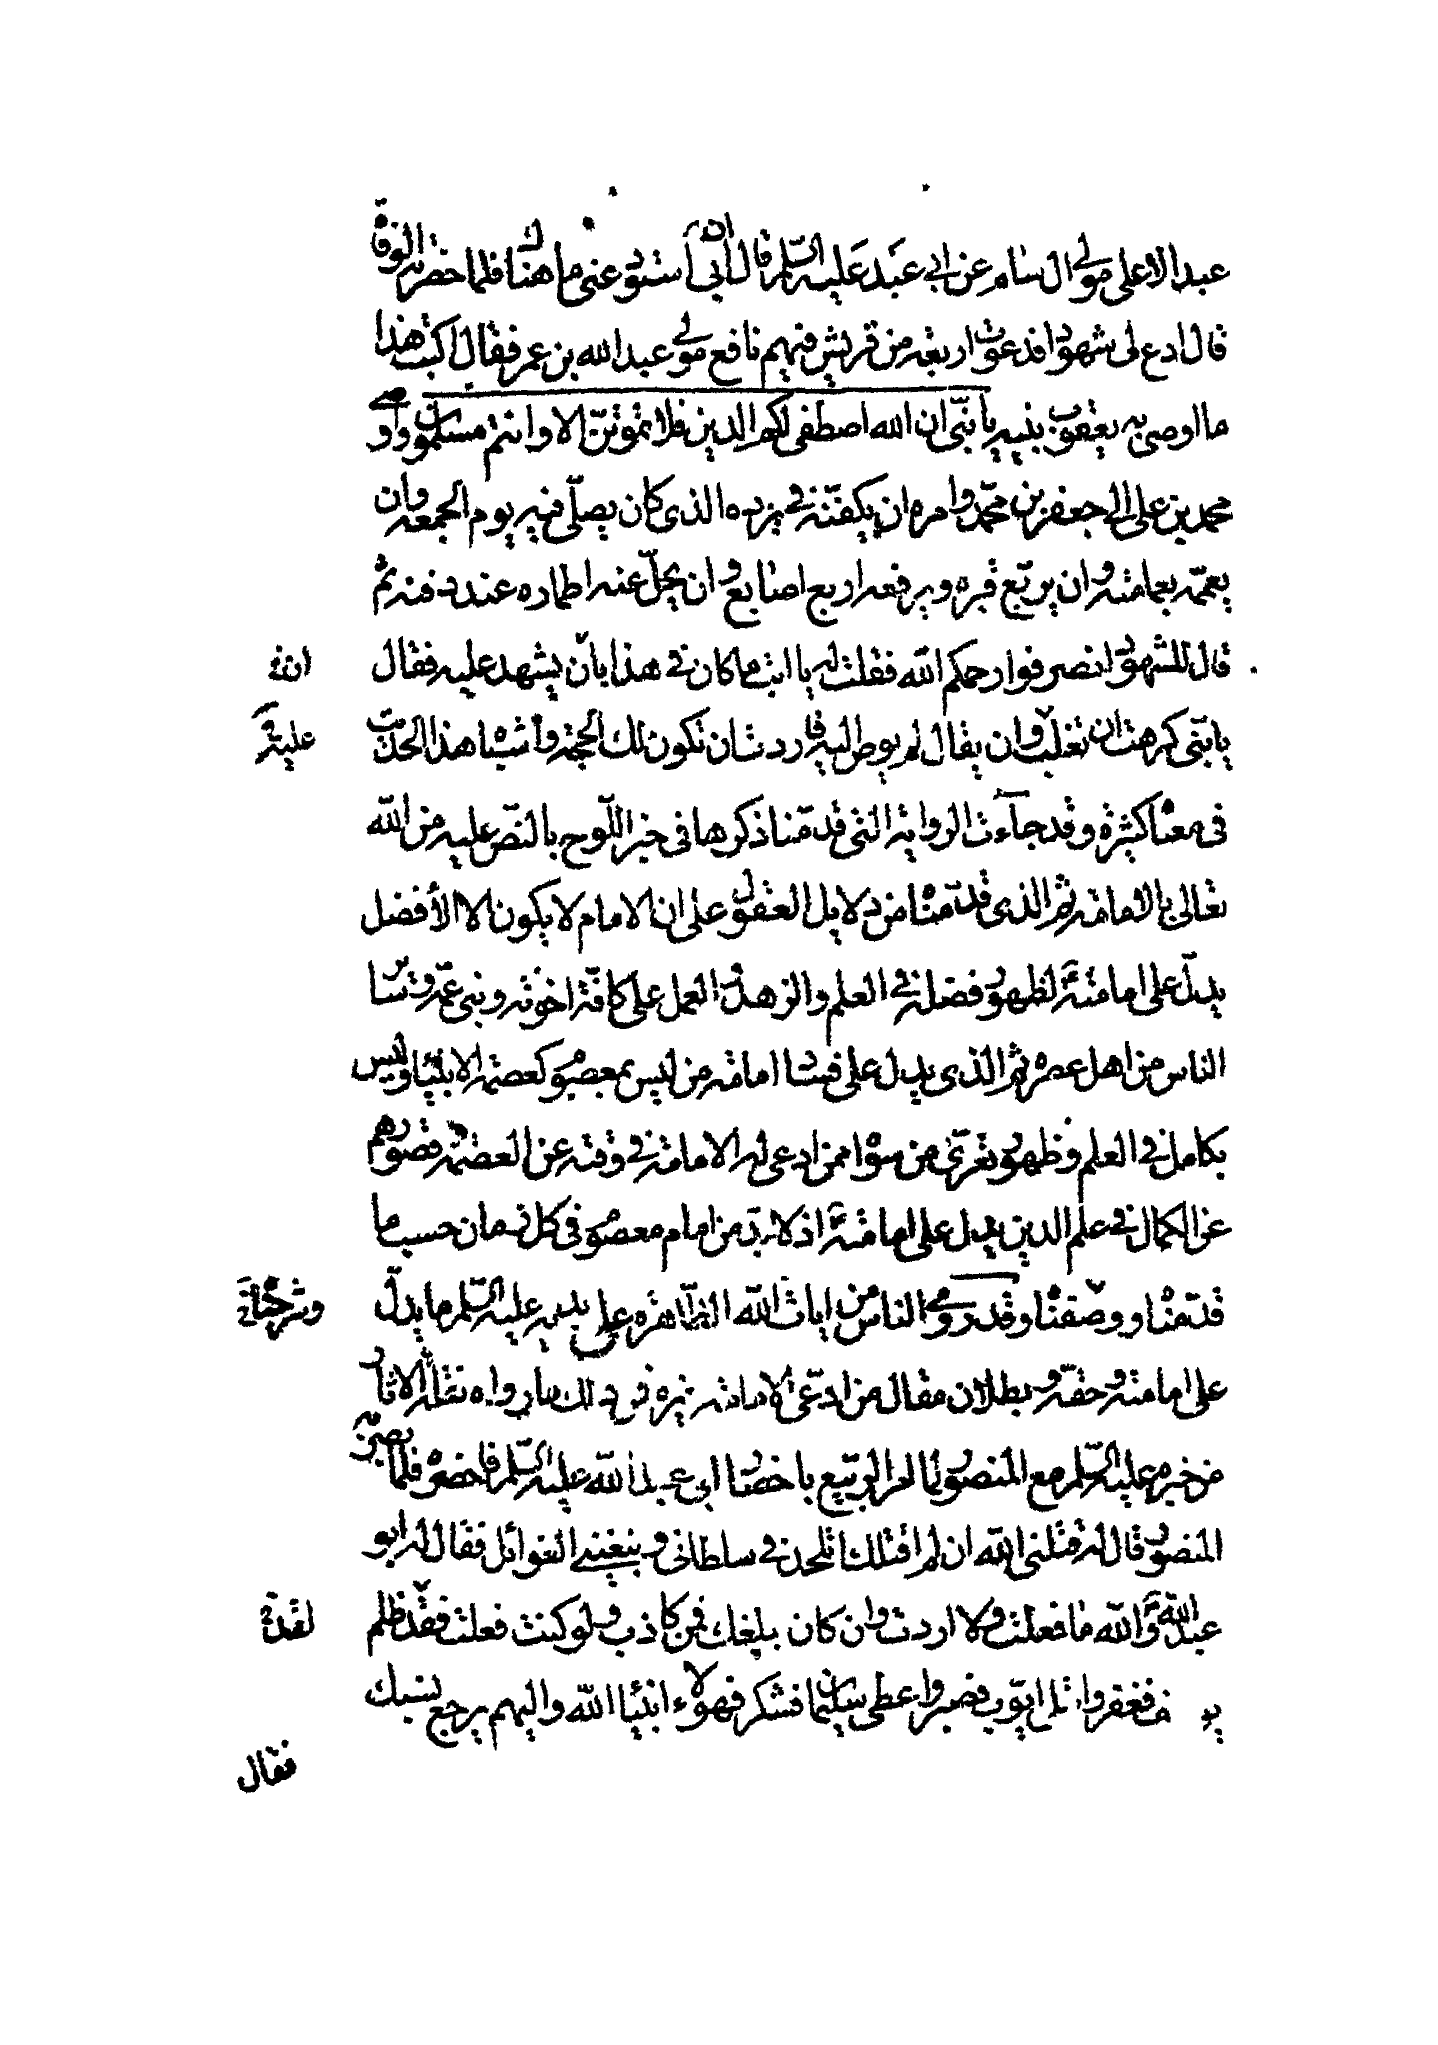 عبد الاعلى مولى ال سام عن ابى عبد عليه السلم قال ان أبى أستودعنى ما هناك فلما حضرته الوفاة
قال ادع لى شهودا فدعوت اربعة من قريش فيهم نافع مولى عبد الله بن عمر فقال اكتب هذا
ما اوصى به يعقوب بنيه يا بنى ان الله اصطفى لكم الدين فلا تموتن الا وانتم مسلمون واوصى
محمد بن على الى جعفر بن محمد وامره ان يكفنه فى برده الذى كان يصلى فيه يوم الجمعه وان
يعممه بعمامته وان يربع قبره ويرفعه اربع اصابع وان يحل عنه اطماره عند دفنه ثم
قال للشهود انصرفوا رحمكم الله فقلت له يا ابت ما كان فى هذا بأن يشهد عليه فقال
يا بنى كرهت ان تغلب وان يقال لم يوص اليه فاردت ان تكون لك الحجة وأشباه هذا الحديث
انه
عليه
فى معناه كثيرة وقد جاءت الرواية التى قدمنا ذكرها فى خبر اللوح بالنص عليه من الله
تعالى بالامامة ثم الذى قدمناه من دلايل العقول على ان الامام لا يكون الا الأفضل
يدل على امامته لظهور فضله فى العلم والزهد والعمل على كافة اخوته وبنى عمه وساير
الناس من اهل عصره ثم الذى يدل على فساد امامة من ليس بمعصوم كعصمة الانبياء وليس
بكامل فى العلم وظهور تعرى من سواه ممن ادعى له الامامة فى وقته عن العصمة وقصورهم
عن الكمال فى علم الدين يدل على امامته اذ لا بد من امام معصوم فى كل زمان حسب ما
قدمناه ووصفناه وقد روى الناس من ايات الله الظاهره على يديه عليه السلم ما يدل
على امامته وحقه وبطلان مقال من ادعى الامامة لغيره فمن ذلك ما رواه نقلة الاثار
من خبره عليه السلم مع المنصور لما امر الربيع باحضار ابى عبد الله عليه السلم فاحضره فلما بصر به
المنصور قال له قتلنى الله ان لم اقتلك اتلحد فى سلطانى وتبغينى الغوائل فقال له ابو
عبد الله والله ما فعلت ولا اردت وان كان بلغك فمن كاذب ولو كنت فعلت فقد ظلم
لقد
يوسف فغفر وابتلى ايوب فصبر واعطى سليمان فشكر فهولاء انبياء الله واليهم يرجع نسبك
فقال